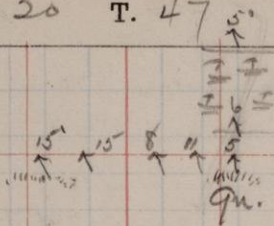 20 T. 47 5'
6
15' 15 8 11 5
Qu.